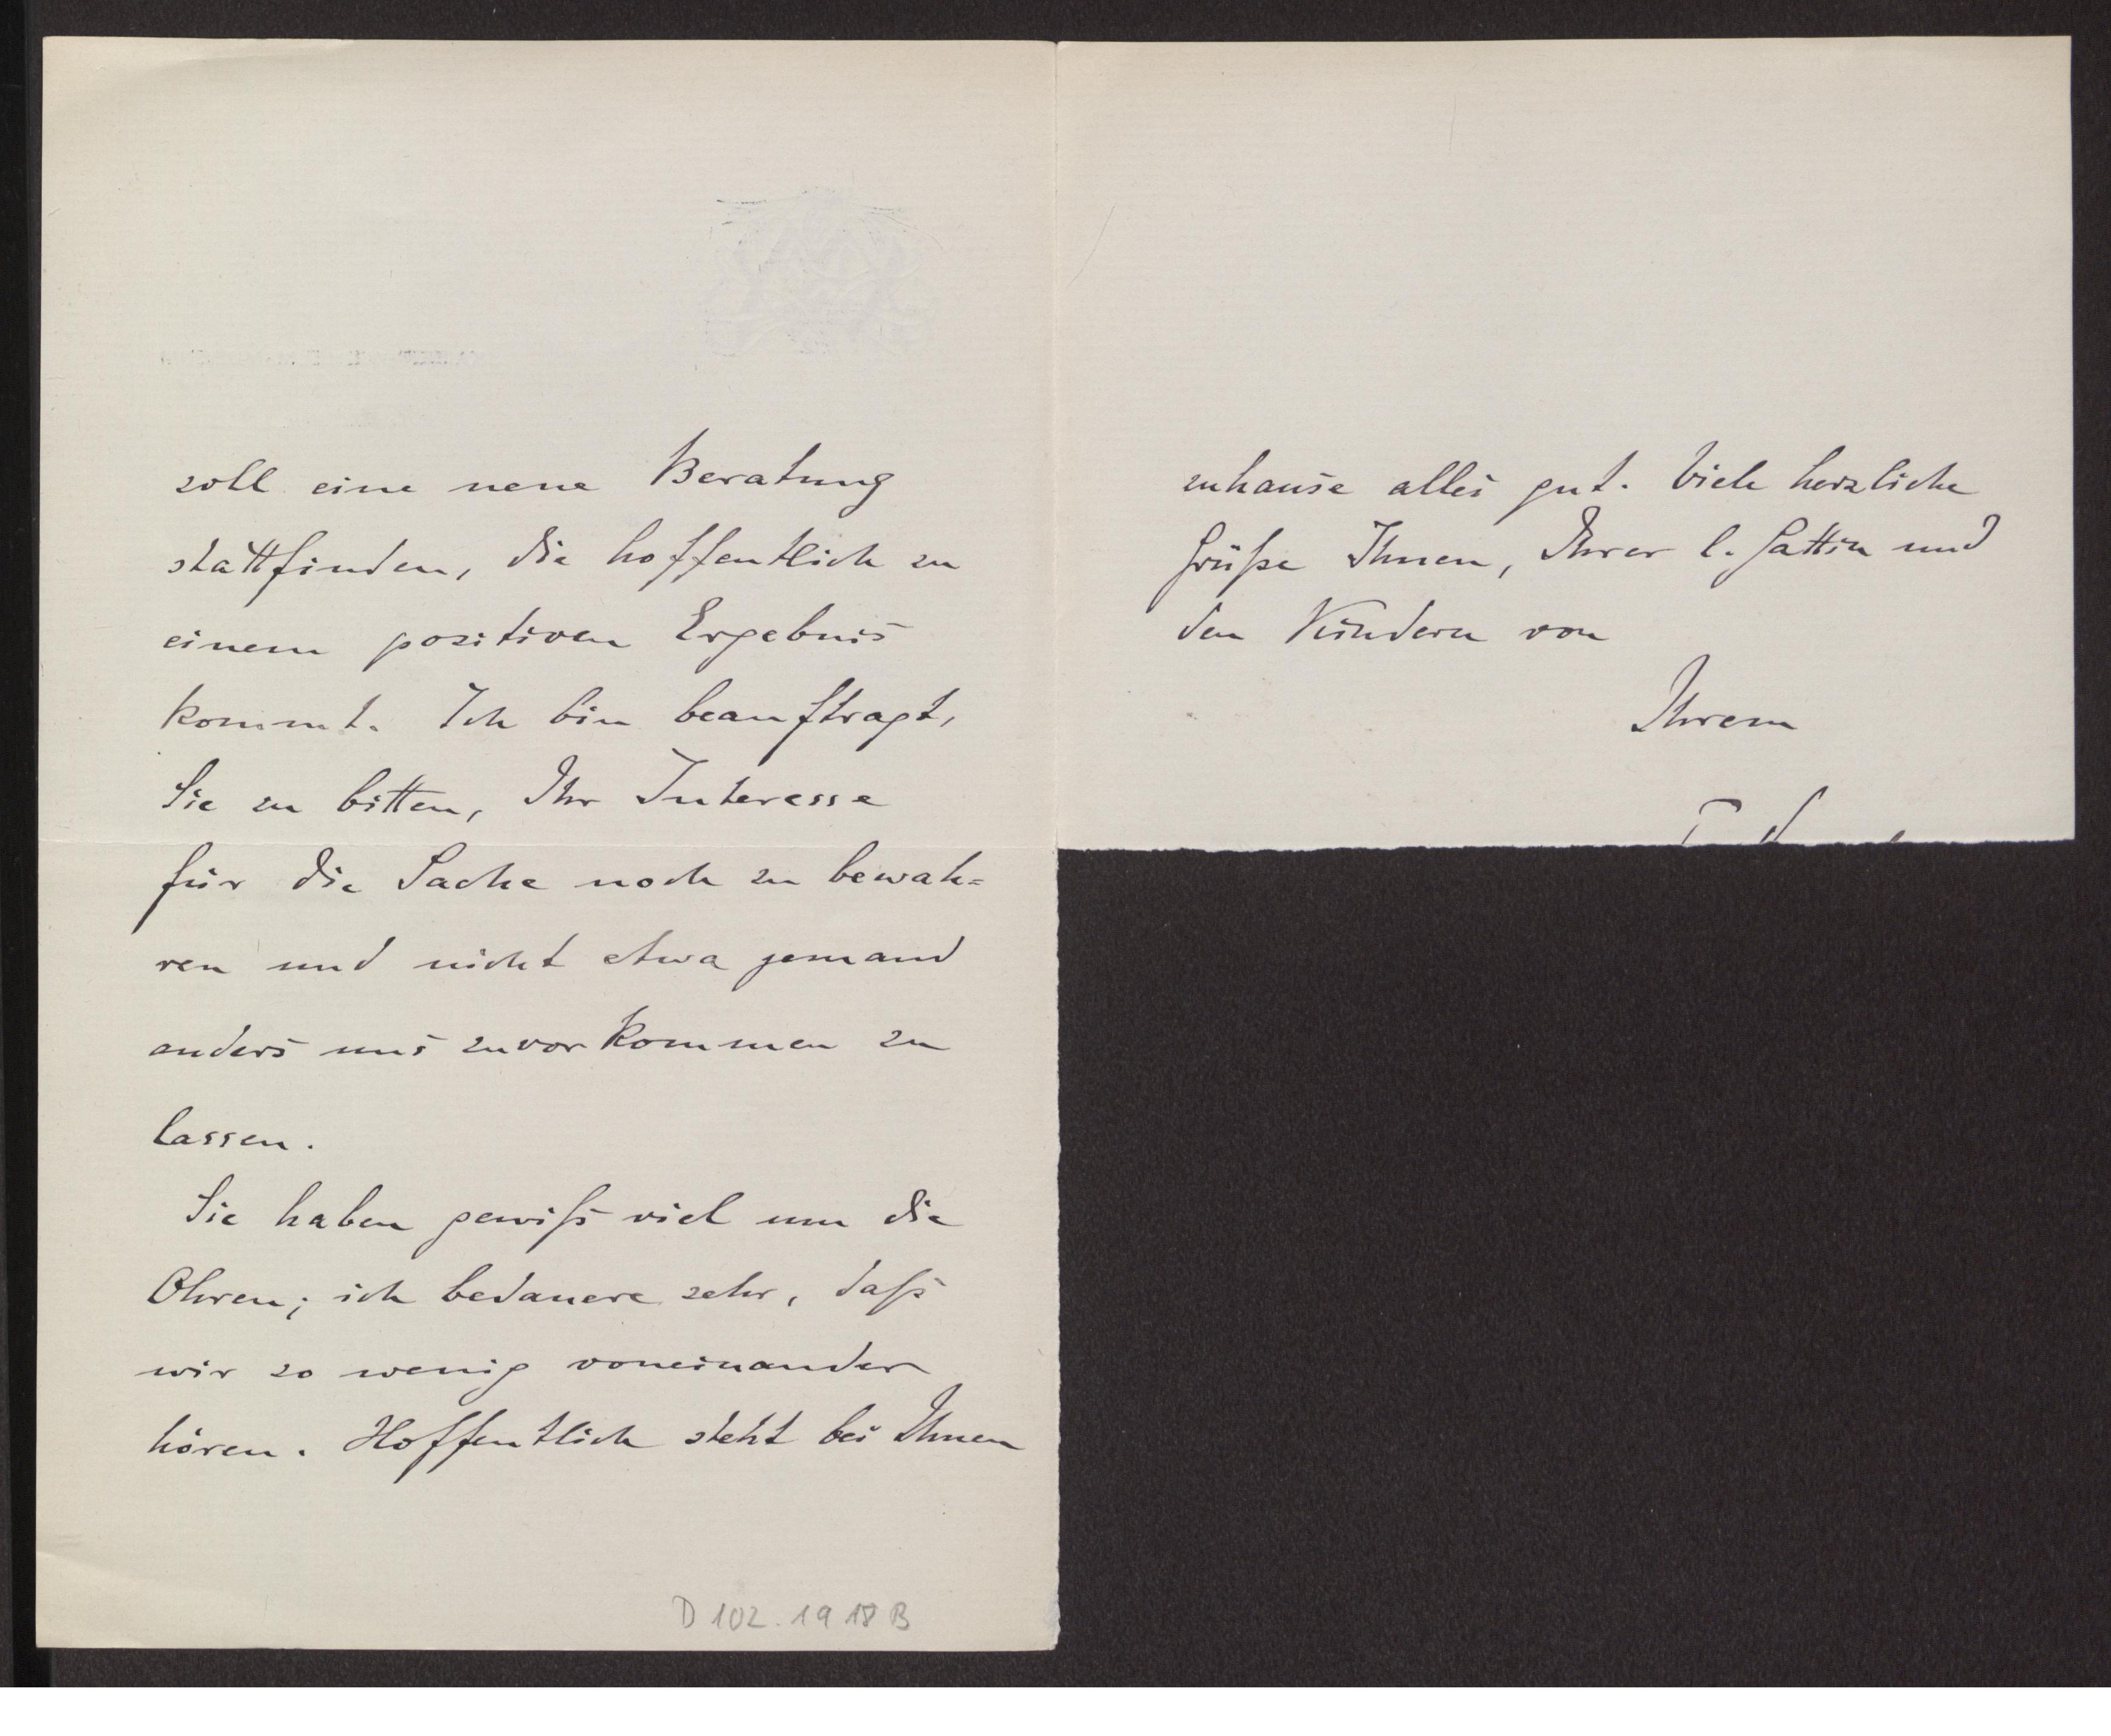 soll eine neue Beratung
stattfinden, die hoffentlich zu
einem positiven Ergebnis
kommt. Ich bin beauftragt,
Sie zu bitten, Ihr Interesse
für die Sache noch zu bewah=
ren und nicht etwa jemand
anders uns zuvorkommen zu
lassen.
Sie haben gewiß viel um die
Ohren; ich bedauere sehr, daß
wir so wenig voneinander
hören. Hoffentlich steht bei Ihnen
D 102.1918 B
zuhause alles gut. Viele herzliche
Grüße Ihnen, Ihrer l. Gattin und
den Kindern von
Ihrem